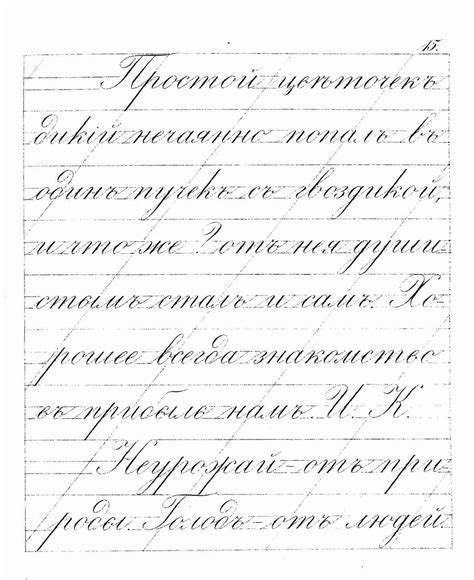 15.
Простой цвѣточекъ
дикій нечаянно попалъ въ
одинъ пучекъ съ гвоздикой,
и что же? отъ нея души-
стымъ сталъ и самъ. Хо-
рошее всегда знакомство
въ прибыль намъ. И. К.
Неурожай – отъ при-
роды. Голодъ – отъ людей.